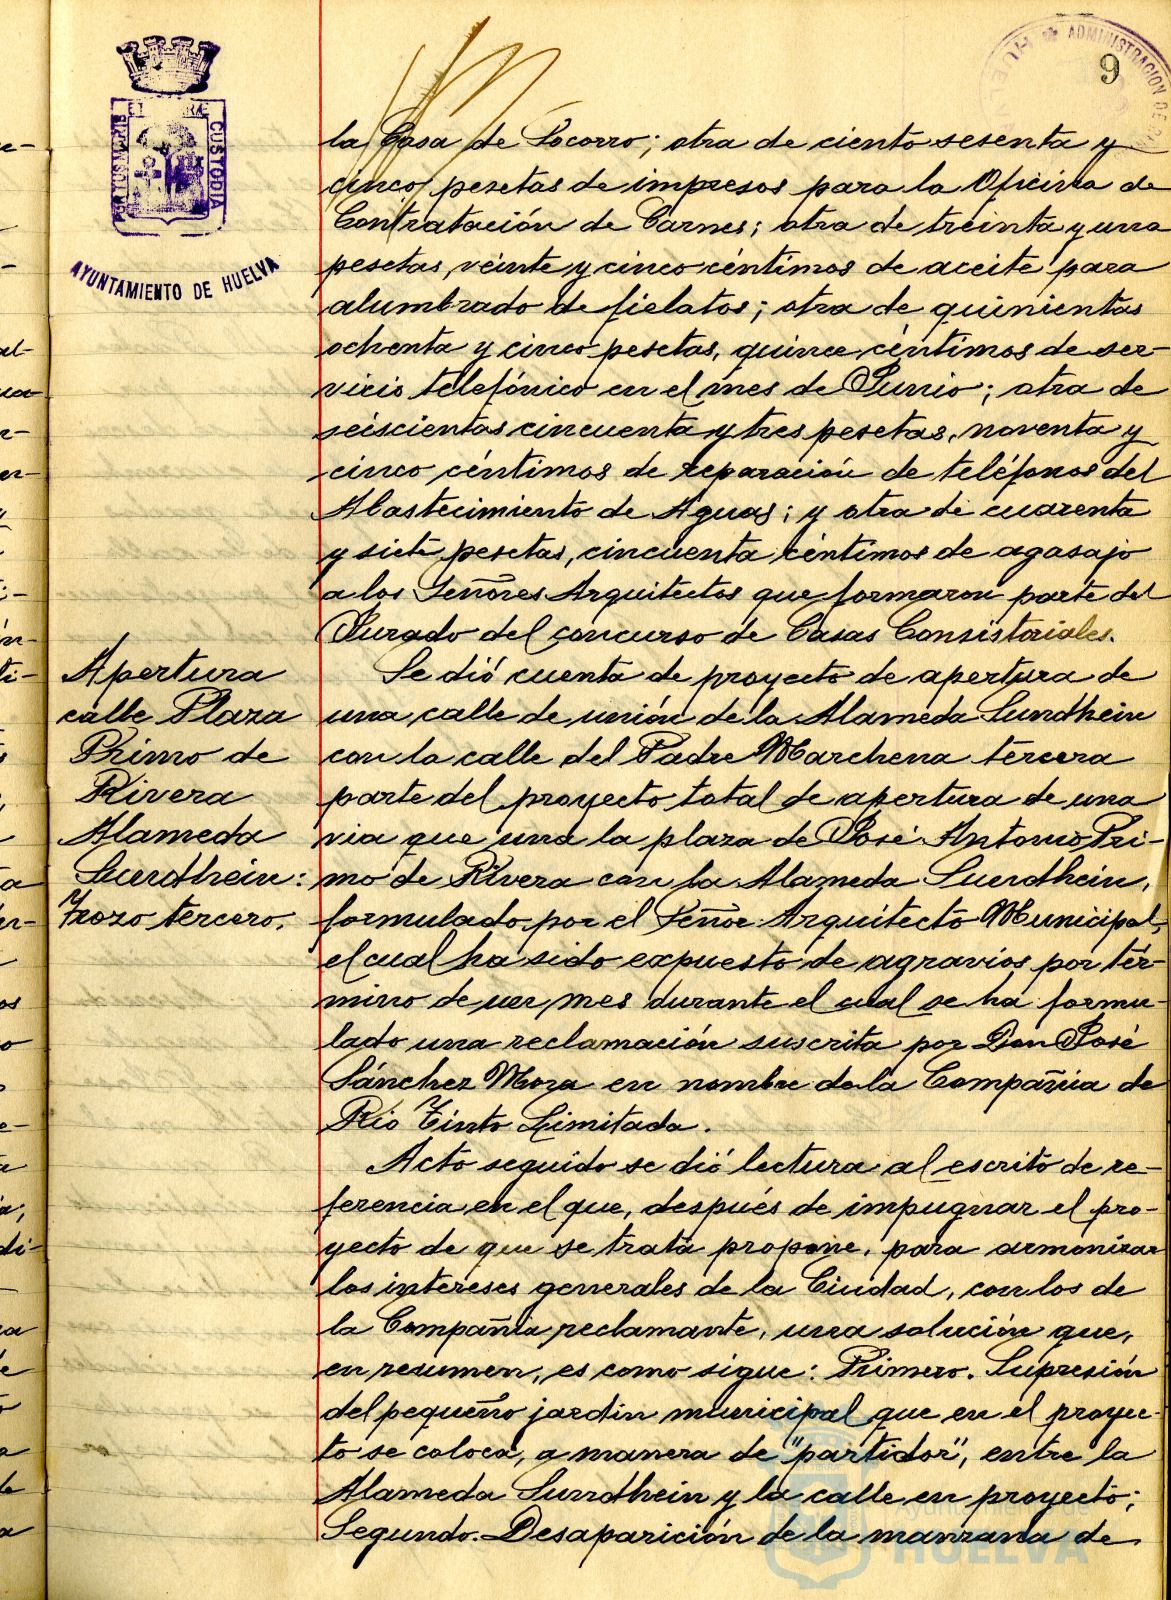 9
ADMINISTRACION DE
PORTUS MARIS
ET TERRÆ
CUSTODIA
AYUNTAMIENTO DE HUELVA
la Casa de Socorro; otra de ciento sesenta y
cinco pesetas de impresos para la Oficina de
Contratación de Carnes; otra de treinta y una
pesetas, veinte y cinco céntimos de aceite para
alumbrado de fielatos; otra de quinientas
ochenta y cinco pesetas, quince céntimos de ser-
vicio telefónico en el mes de Junio; otra de
seiscientas cincuenta y tres pesetas, noventa y
cinco céntimos de reparación de teléfonos del
Abastecimiento de Aguas; y otra de cuarenta
y siete pesetas, cincuenta céntimos de agasajo
a los Señores Arquitectos que formaron parte del
Jurado del concurso de Casas Consistoriales.
Apertura
calle Plaza
Primo de
Rivera
Alameda
Sundhein:
Trozo tercero.
Se dió cuenta de proyecto de apertura de
una calle de unión de la Alameda Sundhein
con la calle del Padre Marchena tercera
parte del proyecto total de apertura de una
via que una la plaza de José Antonio Pri-
mo de Rivera con la Alameda Sundhein,
formulado por el Señor Arquitecto Municipal,
el cual ha sido expuesto de agravios por tér-
mino de un mes durante el cual se ha formu-
lado una reclamación suscrita por Don José
Sánchez Mora en nombre de la Compañia de
Rio Tinto Limitada.
Acto seguido se dió lectura al escrito de re-
ferencia en el que, después de impugnar el pro-
yecto de que se trata propone, para armonizar
los intereses generales de la Ciudad, con los de
la Compañia reclamante, una solución que,
en resumen, es como sigue: Primero. Supresión
del pequeño jardin municipal que en el proyec-
to se coloca, a manera de "partidor", entre la
Alameda Sundhein y la calle en proyecto;
Segundo. Desaparición de la manzana de
Ayuntamiento de
HUELVA